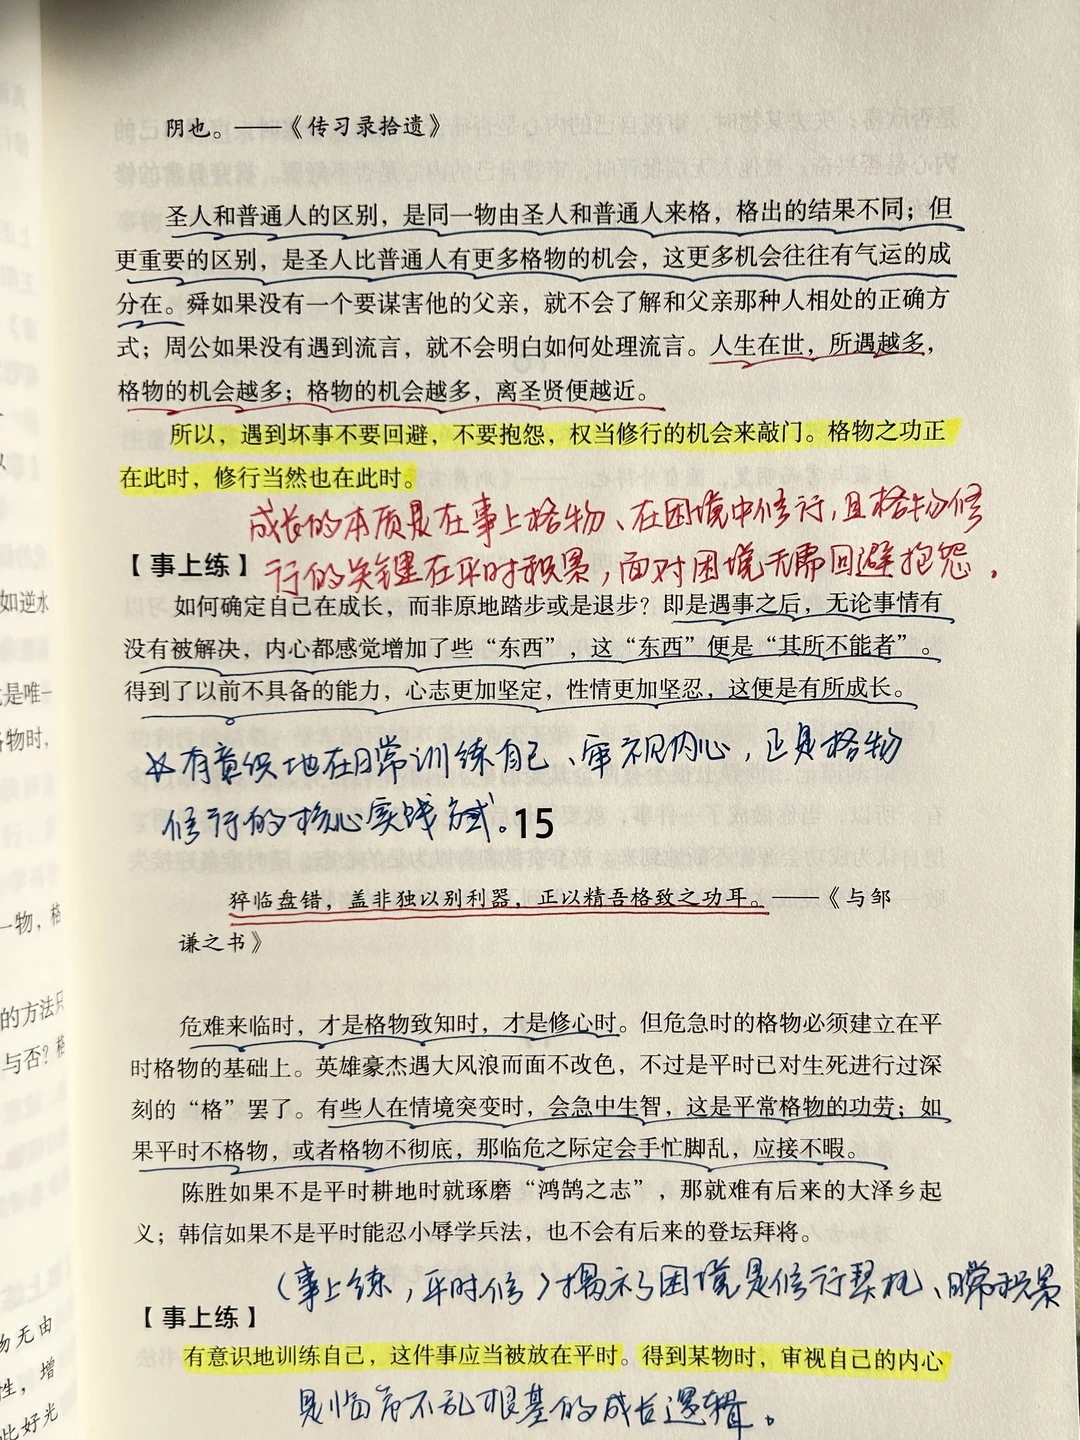 阴也。——《传习录拾遗》
圣人和普通人的区别，是同一物由圣人和普通人来格，格出的结果不同；但
更重要的区别，是圣人比普通人有更多格物的机会，这更多机会往往有气运的成
分在。舜如果没有一个要谋害他的父亲，就不会了解和父亲那种人相处的正确方
式；周公如果没有遇到流言，就不会明白如何处理流言。人生在世，所遇越多，
格物的机会越多；格物的机会越多，离圣贤便越近。
所以，遇到坏事不要回避，不要抱怨，权当修行的机会来敲门。格物之功正
在此时，修行当然也在此时。
成长的本质是在事上格物、在困境中修行，且格物修
【事上练】行的关键在平时积累，面对困境无需回避抱怨。
如何确定自己在成长，而非原地踏步或是退步？即是遇事之后，无论事情有
没有被解决，内心都感觉增加了些“东西”，这“东西”便是“其所不能者”。
得到了以前不具备的能力，心志更加坚定，性情更加坚忍，这便是有所成长。
有意识地在日常训练自己、审视内心，正是格物
修行的核心实践方式。
15
猝临盘错，盖非独以别利器，正以精吾格致之功耳。——《与邹
谦之书》
危难来临时，才是格物致知时，才是修心时。但危急时的格物必须建立在平
时格物的基础上。英雄豪杰遇大风浪而面不改色，不过是平时已对生死进行过深
刻的“格”罢了。有些人在情境突变时，会急中生智，这是平常格物的功劳；如
果平时不格物，或者格物不彻底，那临危之际定会手忙脚乱，应接不暇。
陈胜如果不是平时耕地时就琢磨“鸿鹄之志”，那就难有后来的大泽乡起
义；韩信如果不是平时能忍小辱学兵法，也不会有后来的登坛拜将。
（事上练，平时修）揭示了困境是修行契机、日常积累
【事上练】
有意识地训练自己，这件事应当被放在平时。得到某物时，审视自己的内心
是临危不乱根基的成长逻辑。
如逆水
是唯一
格物时，
一物，格
的方法只
与否？格
物无由
性，增
此好光